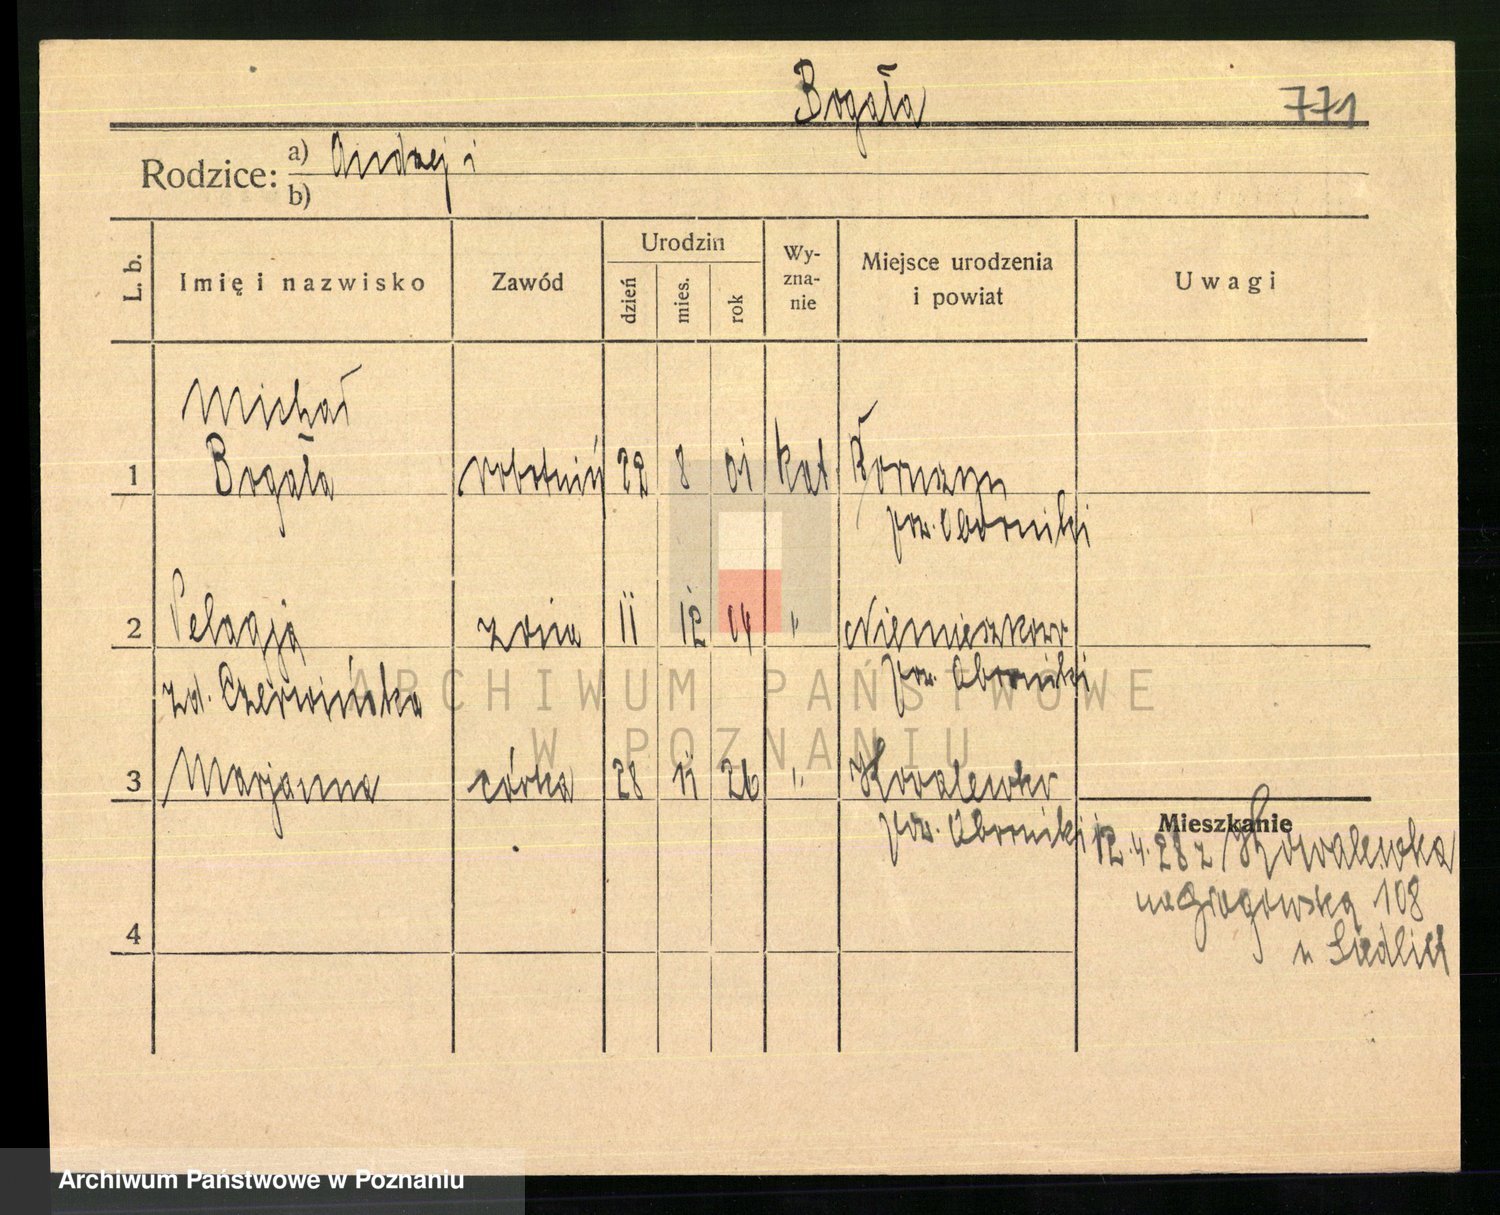 Bogała
771
Rodzice: a) Andrzej i
b)
L. b. Imię i nazwisko Zawód Urodzin dzień mies. rok Wy-zna-nie Miejsce urodzenia i powiat Uwagi
Michał
1 Bogała robotnik 22 8 01 kat
pow. Oborniki
2 Pelagją żona 11 12 04 " Niemieczkowo
zd. Czerwińska pow. Oborniki
ARCHIWUM PAŃSTWOWE
W POZNANIU
3 Marjanna córka 28 11 26 " Kowalewko
pow. Oborniki
Mieszkanie
12.4.28 z Kowalewka
108
4
Archiwum Państwowe w Poznaniu